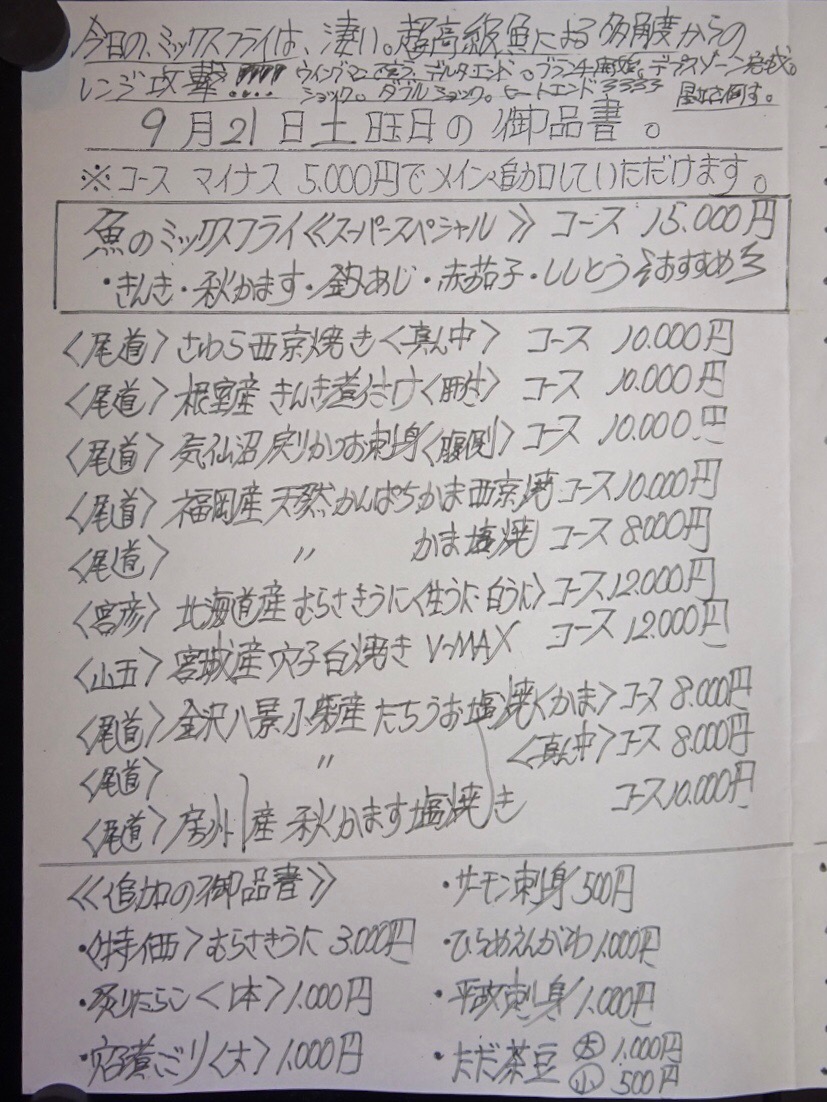 今日の、ミックスフライは、凄い。超高級魚による多角度からの
レンジ攻撃!!!! ウイングマンで言う、デルタエンド。ブランチ開始。デプスゾーン完成。
ショック。ダブルショック。ヒートエンド
9月21日土旺日の御品書。
※コース マイナス 5.000円でメインを追加していただけます。
魚のミックスフライ《スーパースペシャル》 コース 15.000円
・きんき・秋かます・釣あじ・赤茄子・ししとう おすすめ
〈尾道〉さわら西京焼き〈真ん中〉 コース 10.000円
〈尾道〉根室産 きんき煮付け〈肝付〉 コース 10.000円
〈尾道〉気仙沼 戻りかつお刺身〈腹側〉 コース 10.000円
〈尾道〉福岡産 天然かんぱちかま西京焼 コース10.000円
〈尾道〉 〃 かま塩焼 コース 8.000円
〈宮彦〉北海道産 むらさきうに〈生うに 白うに〉コース12.000円
〈山五〉宮城産 穴子白焼き V-MAX コース 12.000円
〈尾道〉金沢八景小柴産 たちうお塩焼〈かま〉コース 8.000円
〈尾道〉 〃 〈真ん中〉コース 8.000円
〈尾道〉房州産 秋かます塩焼き コース10.000円
《追加の御品書》
・〈特価〉むらさきうに 3.000円
・炙りたらこ〈1本〉1.000円
・穴子煮こごり〈大〉1.000円
・サーモン刺身 500円
・ひらめえんがわ 1.000円
・平政刺身 1.000円
・だだ茶豆 大 1.000円
小 500円